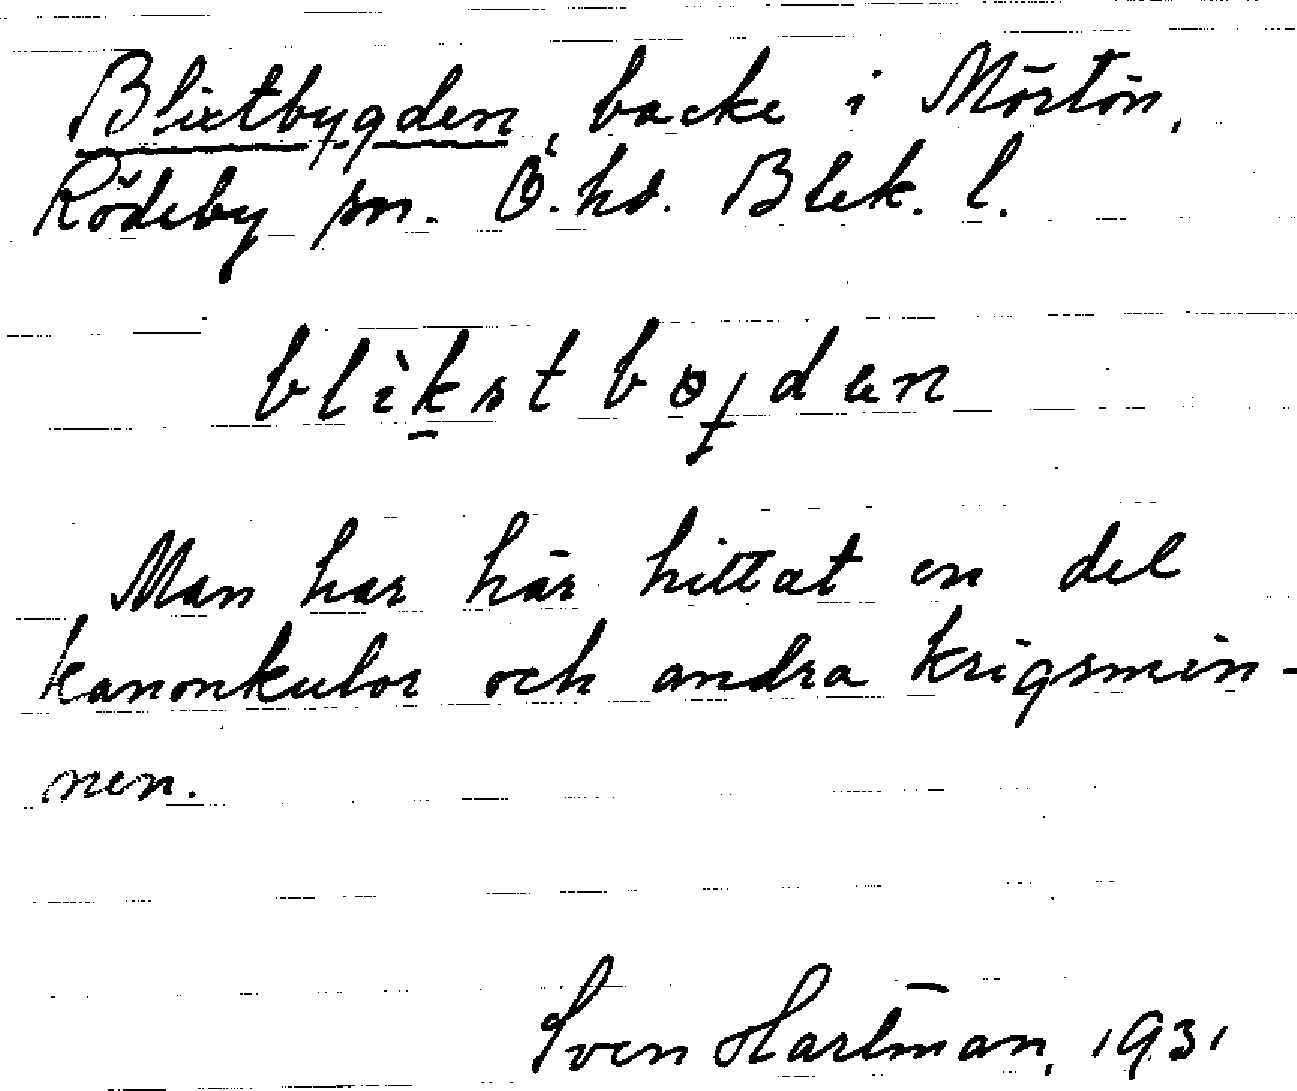 Blixtbygden, backe i Mörtön,
Rödeby sn. Ö. hd. Blek. l.
blìkstbøjdæn
Man har här hittat en del
kanonkulor och andra krigsmin-
nen.
Sven Hartman, 1931